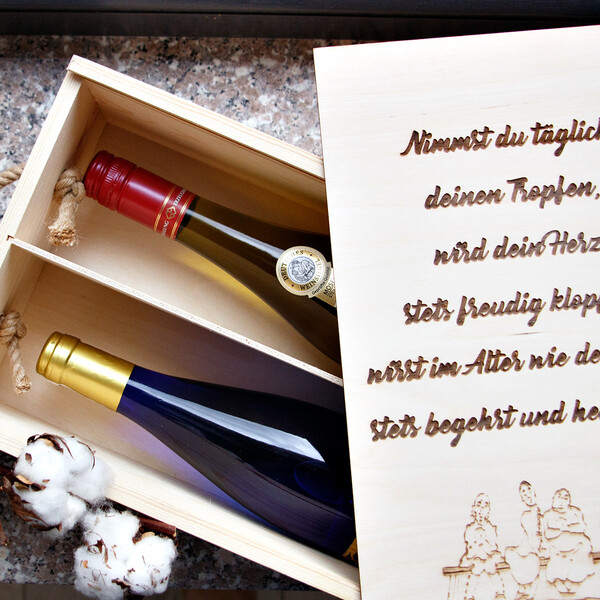 Nimmst du täglich
deinen Tropfen,
wird dein Herz
stets freudig klopf
wirst im Alter wie de
stets begehrt und he